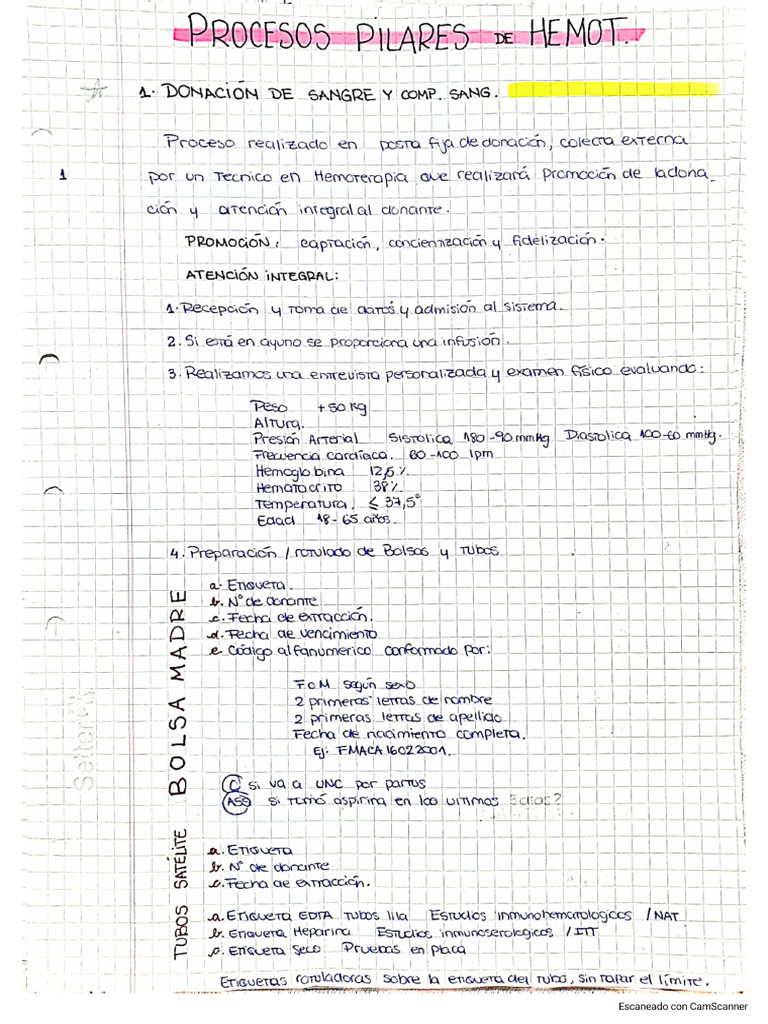 PROCESOS PILARES DE HEMOT.
1. DONACIÓN DE SANGRE Y COMP. SANG.
Proceso realizado en posta fija de donación, colecta externa
1
por un Tecnico en Hemoterapia que realizará promoción de la dona_
ción y atención integral al donante.
PROMOCIÓN: captación, concientización y fidelización.
ATENCIÓN INTEGRAL:
1. Recepción y toma de datos y admisión al sistema.
2. Si está en ayuno se proporciona una infusión.
3. Realizamos una entrevista personalizada y examen físico evaluando:
Peso +50 Kg
Altura.
Presión Arterial Sistolica 180-90 mmHg Diastolica 100-60 mmHg.
Frecuencia cardíaca. 60-100 lpm
Hemoglobina 12,5%
Hematocrito 38%
Temperatura. ≤ 37,5°
Edad 18-65 años.
4. Preparación / rotulado de Bolsas y Tubos
BOLSA MADRE
a. Etiqueta.
b. N° de donante
c. Fecha de extracción.
d. Fecha de vencimiento
e. Código alfanumerico conformado por:
F o M según sexo
2 primeras letras de nombre
2 primeras letras de apellido
Fecha de nacimiento completa.
Ej: FMACA16022001.
C si va a UNC por partos
ASS si tomó aspirina en los ultimos 5 dias?
TUBOS SATÉLITE
a. Etiqueta
b. N° de donante
c. Fecha de extracción.
a. Etiqueta EDTA Tubos lila Estudios inmunohematologicos / NAT
b. Etiqueta Heparina Estudios inmunoserologicos / ITT
c. Etiqueta Seco Pruebas en placa
Etiquetas rotuladoras sobre la etiqueta del tubo, sin tapar el límite.
Escaneado con CamScanner